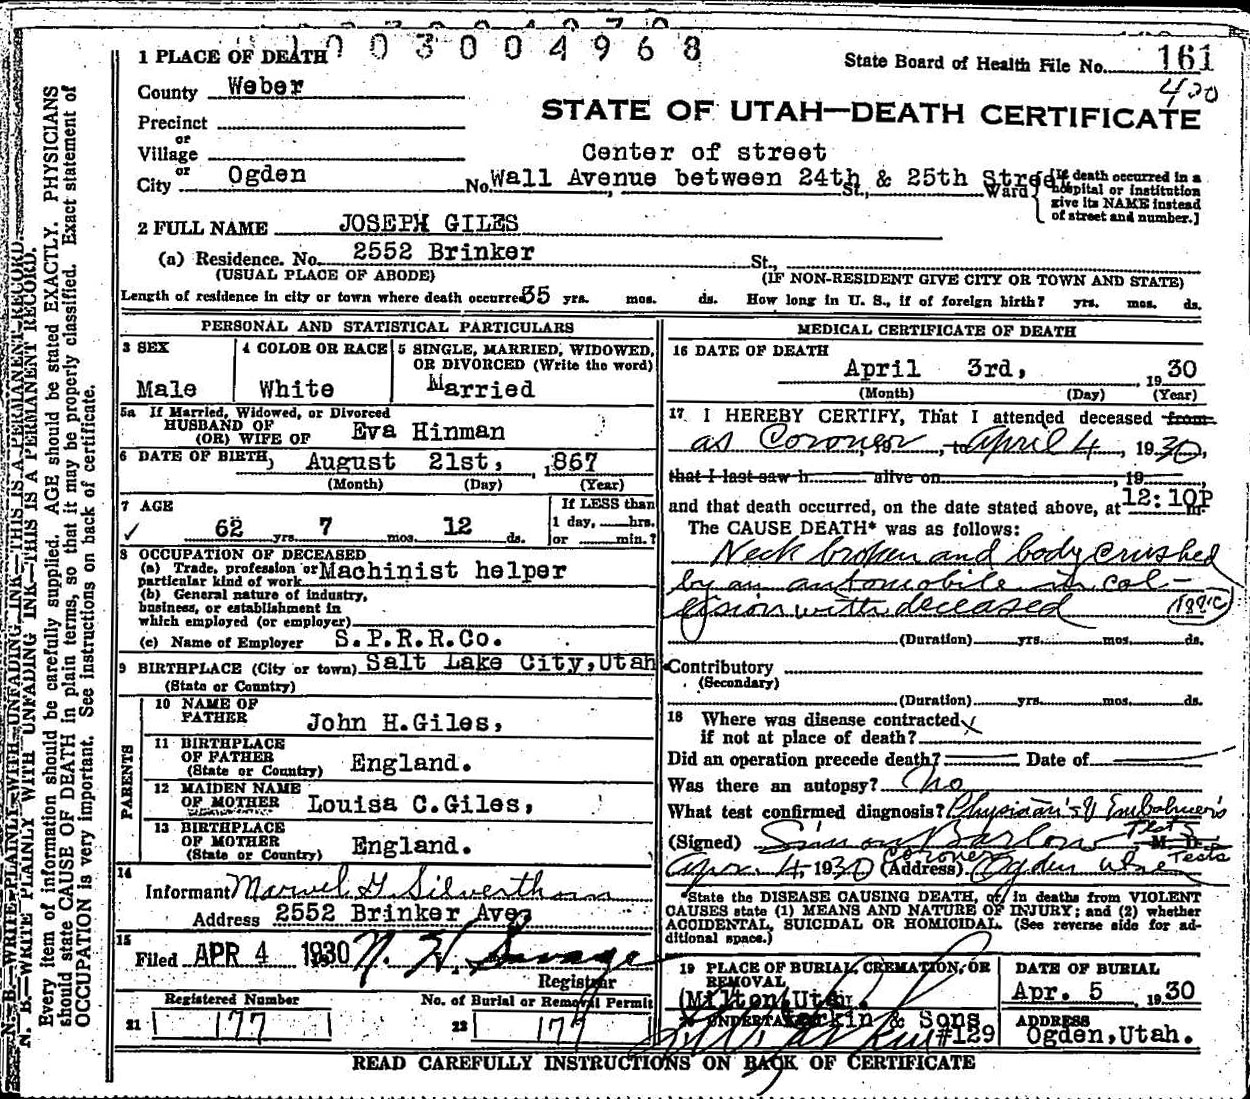 1003004968
1 PLACE OF DEATH
State Board of Health File No. 161
County Weber
420
STATE OF UTAH—DEATH CERTIFICATE
Precinct
or
Village
Center of street
or
City Ogden No. Wall Avenue between 24th St., & 25th Street Ward
[If death occurred in a
hospital or institution
give its NAME instead
of street and number.]
2 FULL NAME JOSEPH GILES
(a) Residence. No. 2552 Brinker St.,
(USUAL PLACE OF ABODE) (IF NON-RESIDENT GIVE CITY OR TOWN AND STATE)
Length of residence in city or town where death occurred 35 yrs. mos. ds. How long in U. S., if of foreign birth? yrs. mos. ds.
PERSONAL AND STATISTICAL PARTICULARS
3 SEX
Male
4 COLOR OR RACE
White
5 SINGLE, MARRIED, WIDOWED,
OR DIVORCED (Write the word)
Married
5a If Married, Widowed, or Divorced
HUSBAND OF
(OR) WIFE OF Eva Hinman
6 DATE OF BIRTH, August 21st, 1867
(Month) (Day) (Year)
7 AGE
62 yrs. 7 mos. 12 ds.
If LESS than
1 day, hrs.
or min.?
8 OCCUPATION OF DECEASED
(a) Trade, profession or
particular kind of work Machinist helper
(b) General nature of industry,
business, or establishment in
which employed (or employer)
(c) Name of Employer S.P.R.R.Co.
9 BIRTHPLACE (City or town) Salt Lake City, Utah
(State or Country)
PARENTS
10 NAME OF
FATHER John H.Giles,
11 BIRTHPLACE
OF FATHER
(State or Country) England.
12 MAIDEN NAME
OF MOTHER Louisa C.Giles,
13 BIRTHPLACE
OF MOTHER
(State or Country) England.
14
Informant Marvel G. Silverthorn
Address 2552 Brinker Ave
15
Filed APR 4 1930 N. H. Savage
Registrar
Registered Number
21 177
No. of Burial or Removal Permit
22 177
MEDICAL CERTIFICATE OF DEATH
16 DATE OF DEATH
April 3rd, 1930
(Month) (Day) (Year)
17 I HEREBY CERTIFY, That I attended deceased from
as Coroner, 19 , to April 4, 1930,
that I last saw h alive on , 19
and that death occurred, on the date stated above, at 12:10P m
The CAUSE DEATH* was as follows:
Neck broken and body crushed
by an automobile in col-
lision with deceased (188c)
(Duration) yrs. mos. ds.
Contributory
(Secondary)
(Duration) yrs. mos. ds.
18 Where was disease contracted
if not at place of death?
Did an operation precede death? Date of
Was there an autopsy? No
What test confirmed diagnosis? Physician's & Embalmer's
Tests
(Signed) Simon Barlow M. D.
Coroner Tests
Apr. 4, 1930 (Address) Ogden Utah
*State the DISEASE CAUSING DEATH, or in deaths from VIOLENT
CAUSES state (1) MEANS AND NATURE OF INJURY; and (2) whether
ACCIDENTAL, SUICIDAL OR HOMICIDAL. (See reverse side for ad-
ditional space.)
19 PLACE OF BURIAL, CREMATION, OR
REMOVAL
(Milton, Utah.
DATE OF BURIAL
Apr. 5 1930
20 UNDERTAKER Larkin & Sons
#129
ADDRESS
Ogden, Utah.
READ CAREFULLY INSTRUCTIONS ON BACK OF CERTIFICATE
N. B.—WRITE PLAINLY WITH UNFADING INK—THIS IS A PERMANENT RECORD.
Every item of information should be carefully supplied. AGE should be stated EXACTLY. PHYSICIANS
should state CAUSE OF DEATH in plain terms, so that it may be properly classified. Exact statement of
OCCUPATION is very important. See instructions on back of certificate.